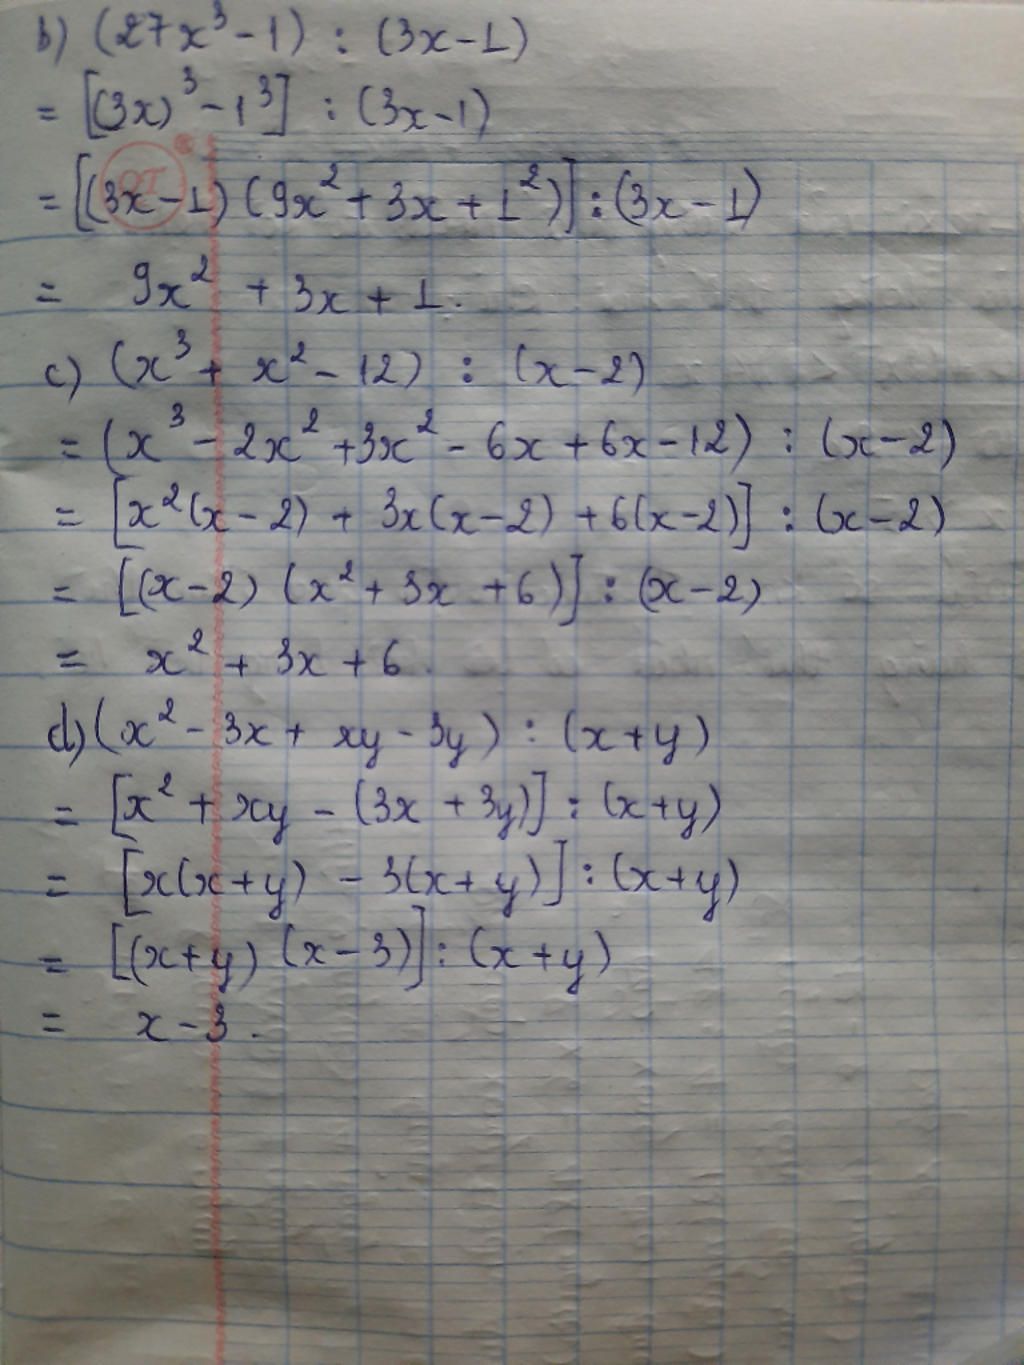 b) (27x³ - 1) : (3x - 1)
= [(3x)³ - 1³] : (3x - 1)
= [(3x - 1) (9x² + 3x + 1²)] : (3x - 1)
= 9x² + 3x + 1.
c) (x³ + x² - 12) : (x - 2)
= (x³ - 2x² + 3x² - 6x + 6x - 12) : (x - 2)
= [x²(x - 2) + 3x(x - 2) + 6(x - 2)] : (x - 2)
= [(x - 2) (x² + 3x + 6)] : (x - 2)
= x² + 3x + 6.
d) (x² - 3x + xy - 3y) : (x + y)
= [x² + xy - (3x + 3y)] : (x + y)
= [x(x + y) - 3(x + y)] : (x + y)
= [(x + y) (x - 3)] : (x + y)
= x - 3.